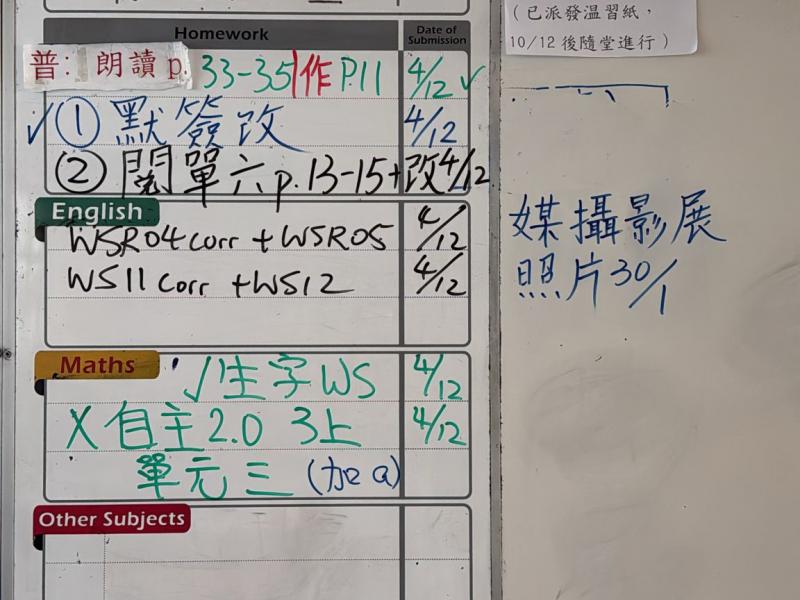 Homework
Date of Submission
普: 朗讀 p. 33-35 作 P.11 4/12 ✓
✓ ① 默簽改 4/12
② 閱單六 p.13-15+改 4/12
English
WSR04 corr + WSR05 4/12
WS11 corr + WS12 4/12
Maths
✓生字 WS 4/12
X 自主2.0 3上 4/12
單元三 (加 a)
Other Subjects
(已派發溫習紙，
10/12 後隨堂進行)
媒攝影展
照片 30/1